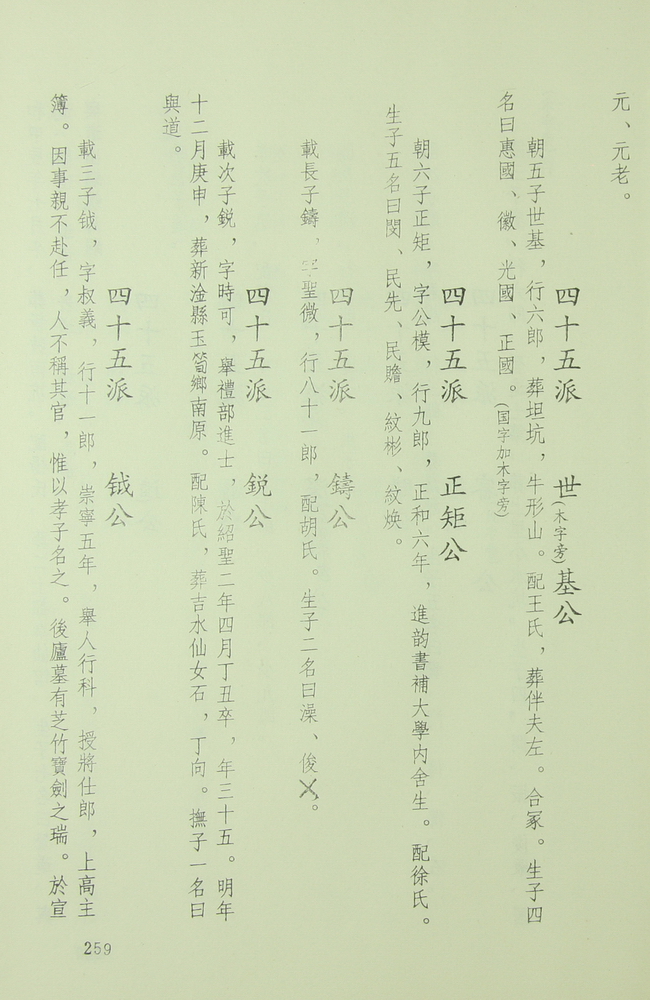 元、元老。
四十五派　世(木字旁)基公
朝五子世基，行六郎，葬坦坑，牛形山。配王氏，葬伴夫左。合冢。生子四
名曰惠國、徽、光國、正國。(国字加木字旁)
四十五派　正矩公
朝六子正矩，字公模，行九郎，正和六年，進韵書補大學内舍生。配徐氏。
生子五名曰閔、民先、民贍、紋彬、紋焕。
四十五派　鑄公
載長子鑄，字聖微，行八十一郎，配胡氏。生子二名曰澡、俊。
四十五派　鋭公
載次子鋭，字時可，舉禮部進士，於紹聖二年四月丁丑卒，年三十五。明年
十二月庚申，葬新淦縣玉笥鄉南原。配陳氏，葬吉水仙女石，丁向。撫子一名曰
與道。
四十五派　钺公
載三子钺，字叔義，行十一郎，崇寧五年，舉人行科，授將仕郎，上高主
簿。因事親不赴任，人不稱其官，惟以孝子名之。後廬墓有芝竹寶劍之瑞。於宣
259